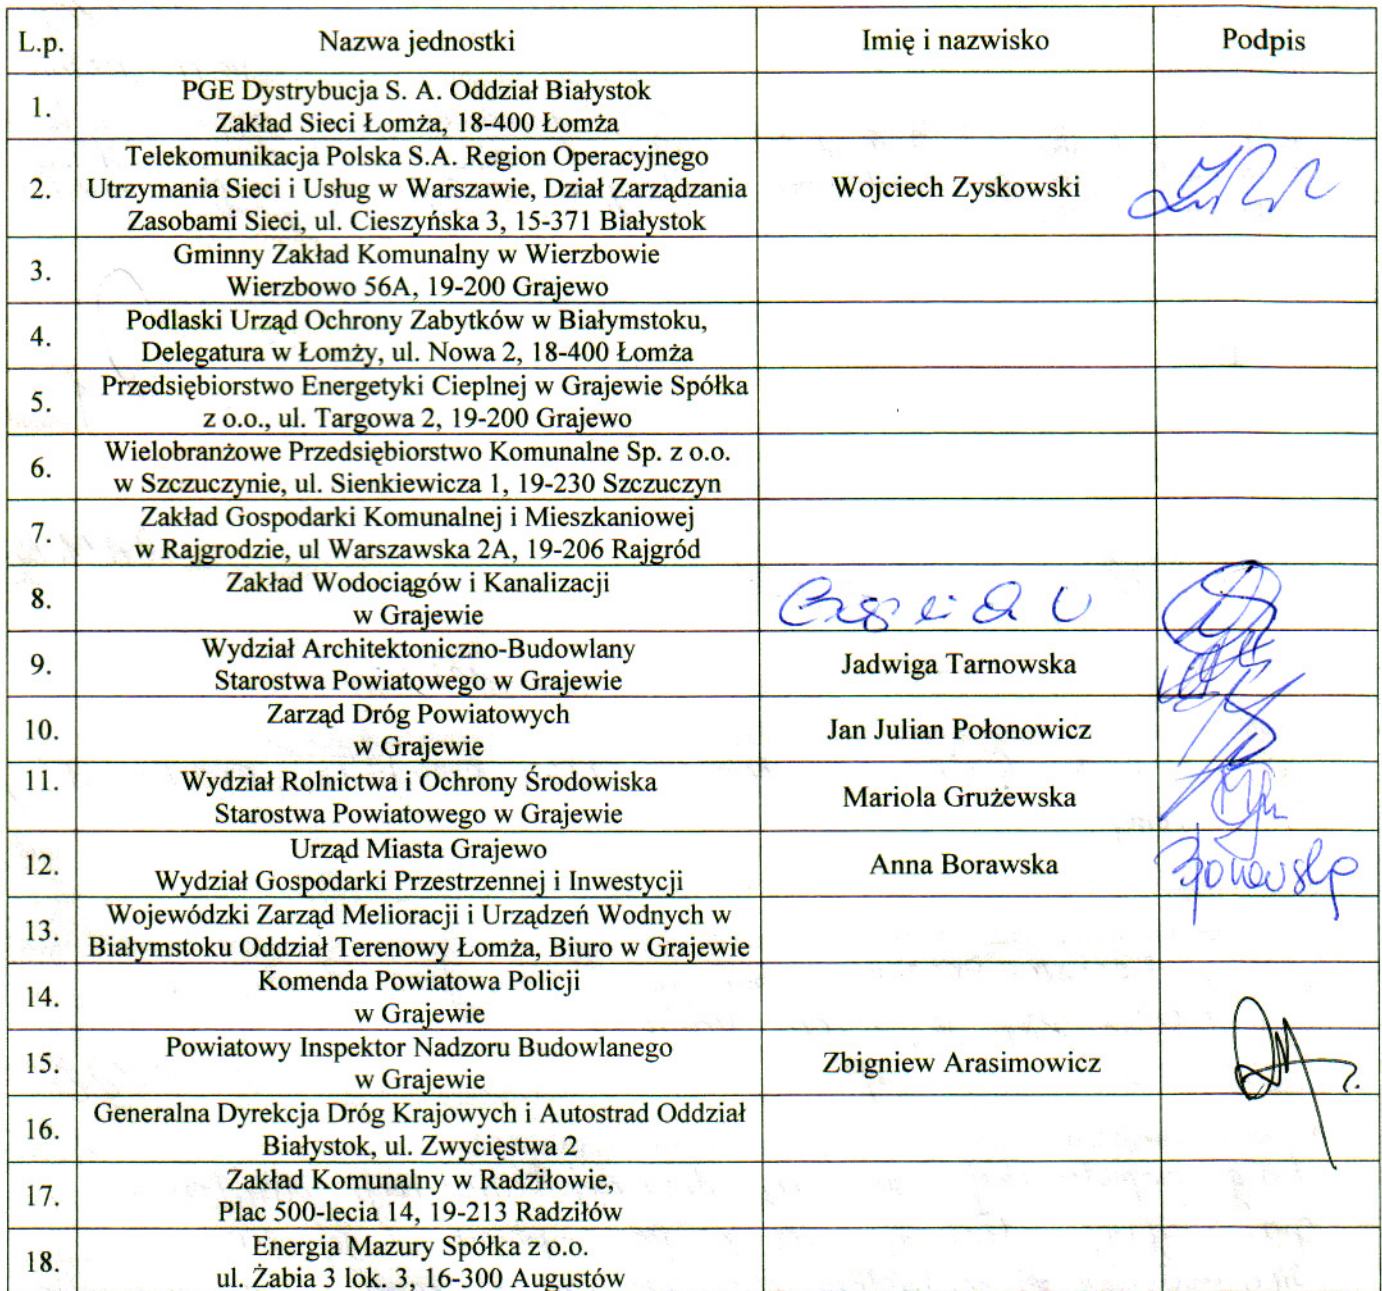 L.p. Nazwa jednostki Imię i nazwisko Podpis
1. PGE Dystrybucja S. A. Oddział Białystok
Zakład Sieci Łomża, 18-400 Łomża
2. Telekomunikacja Polska S.A. Region Operacyjnego
Utrzymania Sieci i Usług w Warszawie, Dział Zarządzania
Zasobami Sieci, ul. Cieszyńska 3, 15-371 Białystok
Wojciech Zyskowski
3. Gminny Zakład Komunalny w Wierzbowie
Wierzbowo 56A, 19-200 Grajewo
4. Podlaski Urząd Ochrony Zabytków w Białymstoku,
Delegatura w Łomży, ul. Nowa 2, 18-400 Łomża
5. Przedsiębiorstwo Energetyki Cieplnej w Grajewie Spółka
z o.o., ul. Targowa 2, 19-200 Grajewo
6. Wielobranżowe Przedsiębiorstwo Komunalne Sp. z o.o.
w Szczuczynie, ul. Sienkiewicza 1, 19-230 Szczuczyn
7. Zakład Gospodarki Komunalnej i Mieszkaniowej
w Rajgrodzie, ul Warszawska 2A, 19-206 Rajgród
8. Zakład Wodociągów i Kanalizacji
w Grajewie
9. Wydział Architektoniczno-Budowlany
Starostwa Powiatowego w Grajewie
Jadwiga Tarnowska
10. Zarząd Dróg Powiatowych
w Grajewie
Jan Julian Połonowicz
11. Wydział Rolnictwa i Ochrony Środowiska
Starostwa Powiatowego w Grajewie
Mariola Grużewska
12. Urząd Miasta Grajewo
Wydział Gospodarki Przestrzennej i Inwestycji
Anna Borawska
13. Wojewódzki Zarząd Melioracji i Urządzeń Wodnych w
Białymstoku Oddział Terenowy Łomża, Biuro w Grajewie
14. Komenda Powiatowa Policji
w Grajewie
15. Powiatowy Inspektor Nadzoru Budowlanego
w Grajewie
Zbigniew Arasimowicz
16. Generalna Dyrekcja Dróg Krajowych i Autostrad Oddział
Białystok, ul. Zwycięstwa 2
17. Zakład Komunalny w Radziłowie,
Plac 500-lecia 14, 19-213 Radziłów
18. Energia Mazury Spółka z o.o.
ul. Żabia 3 lok. 3, 16-300 Augustów